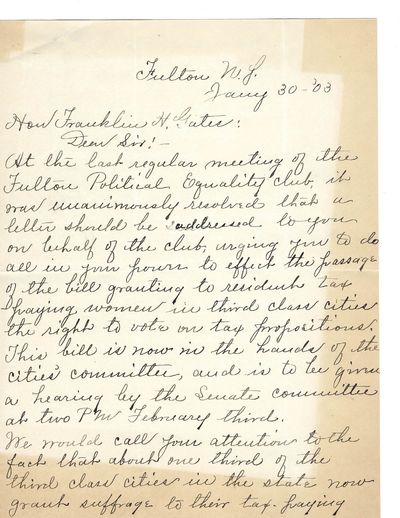 Fulton N.Y.
Jany 30-'03
Hon Franklin H. Gates:
Dear Sir:-
At the last regular meeting of the
Fulton Political Equality club, it
was unanimously resolved that a
letter should be addressed to you
on behalf of the club, urging you to do
all in your power to effect the passage
of the bill granting to resident tax
paying women in third class cities
the right to vote on tax propositions.
This bill is now in the hands of the
cities' committee, and is to be given
a hearing by the Senate committee
at two P M February third.
We would call your attention to the
fact that about one third of the
third class cities in the state now
grant suffrage to their tax-paying